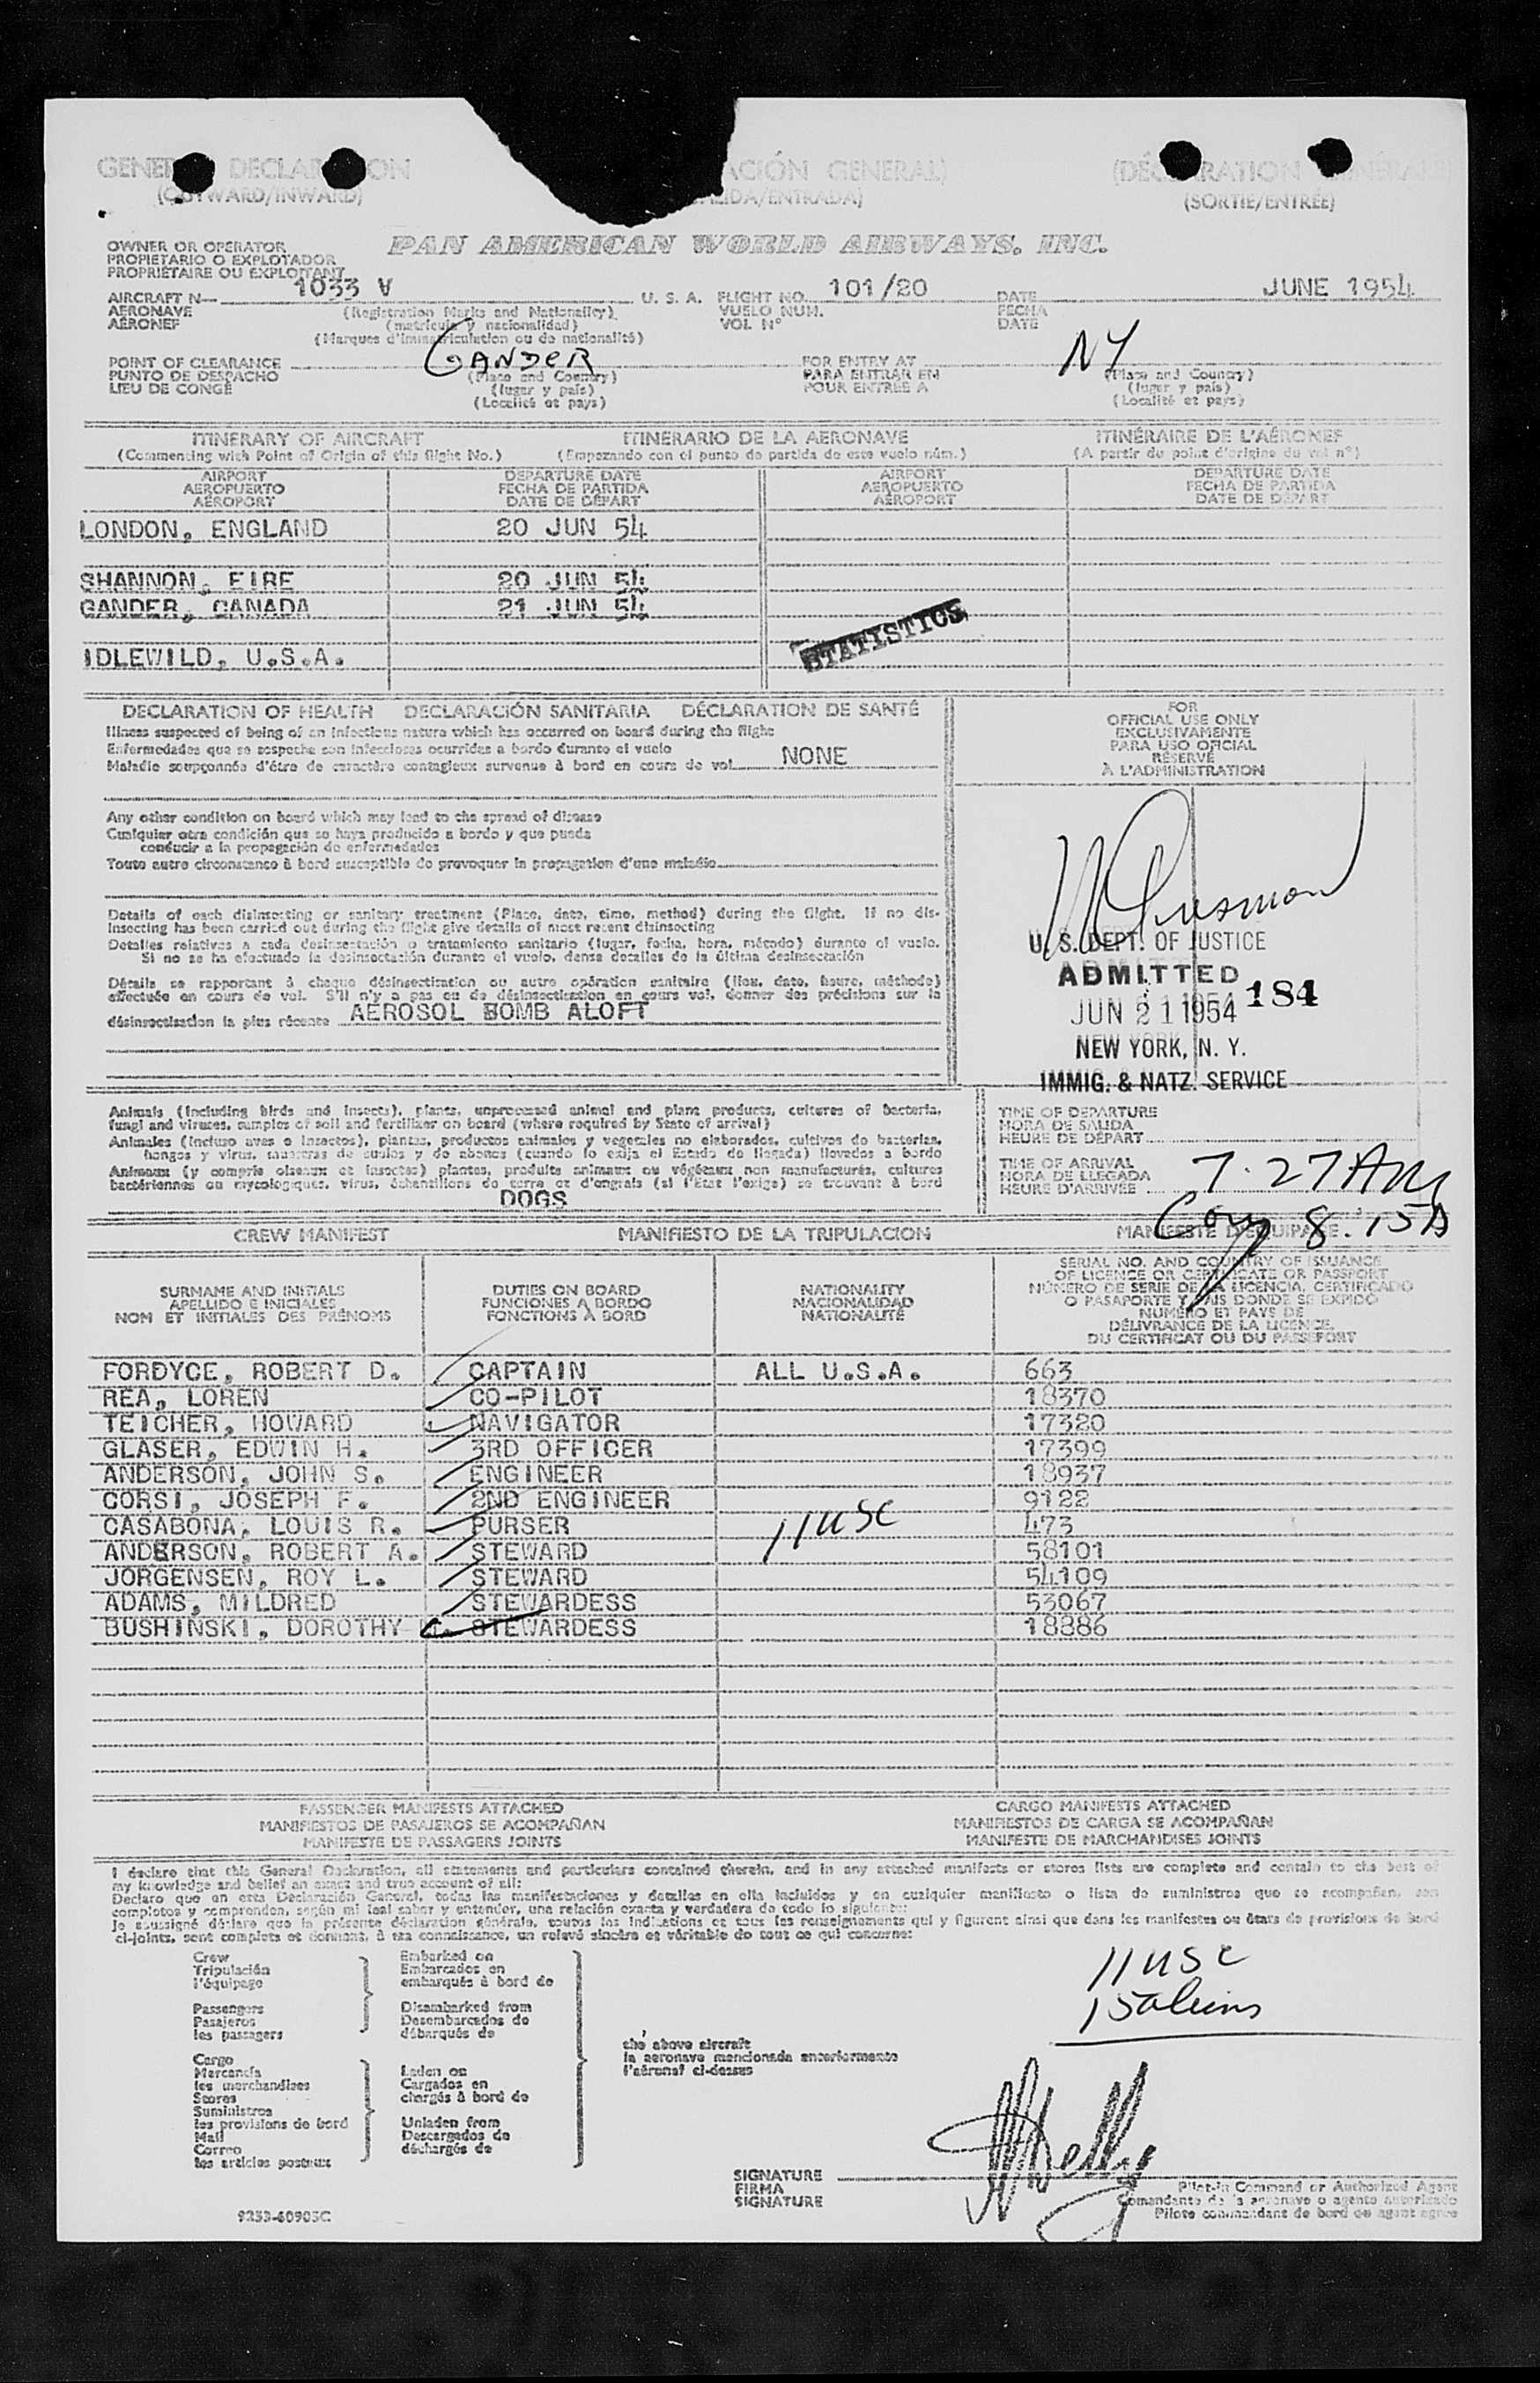 GENE DECLA ON
(OUTWARD/INWARD)
ACIÓN GENERAL)
LIDA/ENTRADA)
(DÉC RATION NÉRALE
(SORTIE/ENTRÉE)
OWNER OR OPERATOR
PROPIETARIO O EXPLOTADOR
PROPRIÉTAIRE OU EXPLOITANT
PAN AMERICAN WORLD AIRWAYS, INC.
AIRCRAFT N 1033 V U. S. A. FLIGHT NO. 101/20 DATE JUNE 1954
AERONAVE (Registration Marks and Nationality) VUELO NUM. FECHA
AÉRONEF (matrícula y nacionalidad) VOL Nº DATE
(Marques d'immatriculation ou de nationalité)
POINT OF CLEARANCE GANDER FOR ENTRY AT NY
PUNTO DE DESPACHO (Place and Country) PARA ENTRAR EN (Place and Country)
LIEU DE CONGÉ (lugar y país) POUR ENTRÉE A (lugar y país)
(Localité et pays) (Localité et pays)
ITINERARY OF AIRCRAFT ITINERARIO DE LA AERONAVE ITINÉRAIRE DE L'AÉRONEF
(Commencing with Point of Origin of this flight No.) (Empezando con el punto de partida de este vuelo núm.) (A partir du point d'origine du vol nº)
AIRPORT DEPARTURE DATE AIRPORT DEPARTURE DATE
AEROPUERTO FECHA DE PARTIDA AEROPUERTO FECHA DE PARTIDA
AÉROPORT DATE DE DÉPART AÉROPORT DATE DE DÉPART
LONDON, ENGLAND 20 JUN 54
SHANNON, EIRE 20 JUN 54
GANDER, CANADA 21 JUN 54
STATISTICS
IDLEWILD, U.S.A.
DECLARATION OF HEALTH DECLARACIÓN SANITARIA DÉCLARATION DE SANTÉ
Illness suspected of being of an infectious nature which has occurred on board during the flight
Enfermedades que se sospecha son infecciosas ocurridas a bordo durante el vuelo
Maladie soupçonnée d'être de caractère contagieux survenue à bord en cours de vol NONE
Any other condition on board which may lead to the spread of disease
Cualquier otra condición que se haya producido a bordo y que pueda
conducir a la propagación de enfermedades
Toute autre circonstance à bord susceptible de provoquer la propagation d'une maladie
Details of each disinsecting or sanitary treatment (Place, date, time, method) during the flight. If no dis-
insecting has been carried out during the flight give details of most recent disinsecting
Detalles relativos a cada desinsectación o tratamiento sanitario (lugar, fecha, hora, método) durante el vuelo.
Si no se ha efectuado la desinsectación durante el vuelo, dense detalles de la última desinsectación
Détails se rapportant à chaque désinsectisation ou autre opération sanitaire (lieu, date, heure, méthode)
effectuée en cours de vol. S'il n'y a pas eu de désinsectisation en cours vol, donner des précisions sur la
désinsectisation la plus récente AEROSOL BOMB ALOFT
FOR
OFFICIAL USE ONLY
EXCLUSIVAMENTE
PARA USO OFICIAL
RÉSERVÉ
À L'ADMINISTRATION
U. S. DEPT. OF JUSTICE
ADMITTED
JUN 21 1954 184
NEW YORK, N. Y.
IMMIG. & NATZ. SERVICE
Animals (including birds and insects), plants, unprocessed animal and plant products, cultures of bacteria,
fungi and viruses, samples of soil and fertilizer on board (where required by State of arrival)
Animales (incluso aves o insectos), plantas, productos animales y vegetales no elaborados, cultivos de bacterias,
hongos y virus, muestras de suelos y de abonos (cuando lo exija el Estado de llegada) llevados a bordo
Animaux (y compris oiseaux et insectes) plantes, produits animaux ou végétaux non manufacturés, cultures
bactériennes ou mycologiques, virus, échantillons de terre et d'engrais (si l'État l'exige) se trouvant à bord
DOGS
TIME OF DEPARTURE
HORA DE SALIDA
HEURE DE DÉPART
TIME OF ARRIVAL
HORA DE LLEGADA
HEURE D'ARRIVÉE 7.27 AM
8.15A
CREW MANIFEST MANIFIESTO DE LA TRIPULACION MANIFESTE D'ÉQUIPAGE
SURNAME AND INITIALS
APELLIDO E INICIALES
NOM ET INITIALES DES PRÉNOMS
DUTIES ON BOARD
FUNCIONES A BORDO
FONCTIONS À BORD
NATIONALITY
NACIONALIDAD
NATIONALITÉ
SERIAL NO. AND COUNTRY OF ISSUANCE
OF LICENCE OR CERTIFICATE OR PASSPORT
NÚMERO DE SERIE DE LA LICENCIA, CERTIFICADO
O PASAPORTE Y PAIS DONDE SE EXPIDO
NUMÉRO ET PAYS DE
DÉLIVRANCE DE LA LICENCE,
DU CERTIFICAT OU DU PASSEPORT
FORDYCE, ROBERT D. CAPTAIN ALL U.S.A. 663
REA, LOREN CO-PILOT 18370
TEICHER, HOWARD NAVIGATOR 17320
GLASER, EDWIN H. 3RD OFFICER 17399
ANDERSON, JOHN S. ENGINEER 18937
CORSI, JOSEPH F. 2ND ENGINEER 9122
CASABONA, LOUIS R. PURSER 11 USC 473
ANDERSON, ROBERT A. STEWARD 58101
JORGENSEN, ROY L. STEWARD 54109
ADAMS, MILDRED STEWARDESS 53067
BUSHINSKI, DOROTHY STEWARDESS 18886
PASSENGER MANIFESTS ATTACHED CARGO MANIFESTS ATTACHED
MANIFIESTOS DE PASAJEROS SE ACOMPAÑAN MANIFIESTOS DE CARGA SE ACOMPAÑAN
MANIFESTE DE PASSAGERS JOINTS MANIFESTE DE MARCHANDISES JOINTS
I declare that this General Declaration, all statements and particulars contained therein, and in any attached manifests or stores lists are complete and contain to the best of
my knowledge and belief an exact and true account of all:
Declaro que en esta Declaración General, todas las manifestaciones y detalles en ella incluidos y en cualquier manifiesto o lista de suministros que se acompañan, son
completos y comprenden, según mi leal saber y entender, una relación exacta y verdadera de todo lo siguiente:
Je soussigné déclare que la présente déclaration générale, toutes les indications et tous les renseignements qui y figurent ainsi que dans les manifestes ou états de provisions de bord
ci-joints, sont complets et donnent, à ma connaissance, un relevé sincère et véritable de tout ce qui concerne:
Crew Embarked on
Tripulación Embarcados en
l'équipage embarqués à bord de
Passengers Disembarked from
Pasajeros Desembarcados de
les passagers débarqués de
Cargo
Mercancía Laden on
les merchandises Cargados en
Stores chargés à bord de
Suministros
les provisions de bord Unladen from
Mail Descargados de
Correo déchargés de
les articles postaux
the above aircraft
la aeronave mencionada anteriormente
l'aéronef ci-dessus
11 USC
15 aliens
SIGNATURE
FIRMA
SIGNATURE
Pilot-in Command or Authorized Agent
Comandante de la aeronave o agente autorizado
Pilote commandant de bord ou agent agréé
9233-60905C